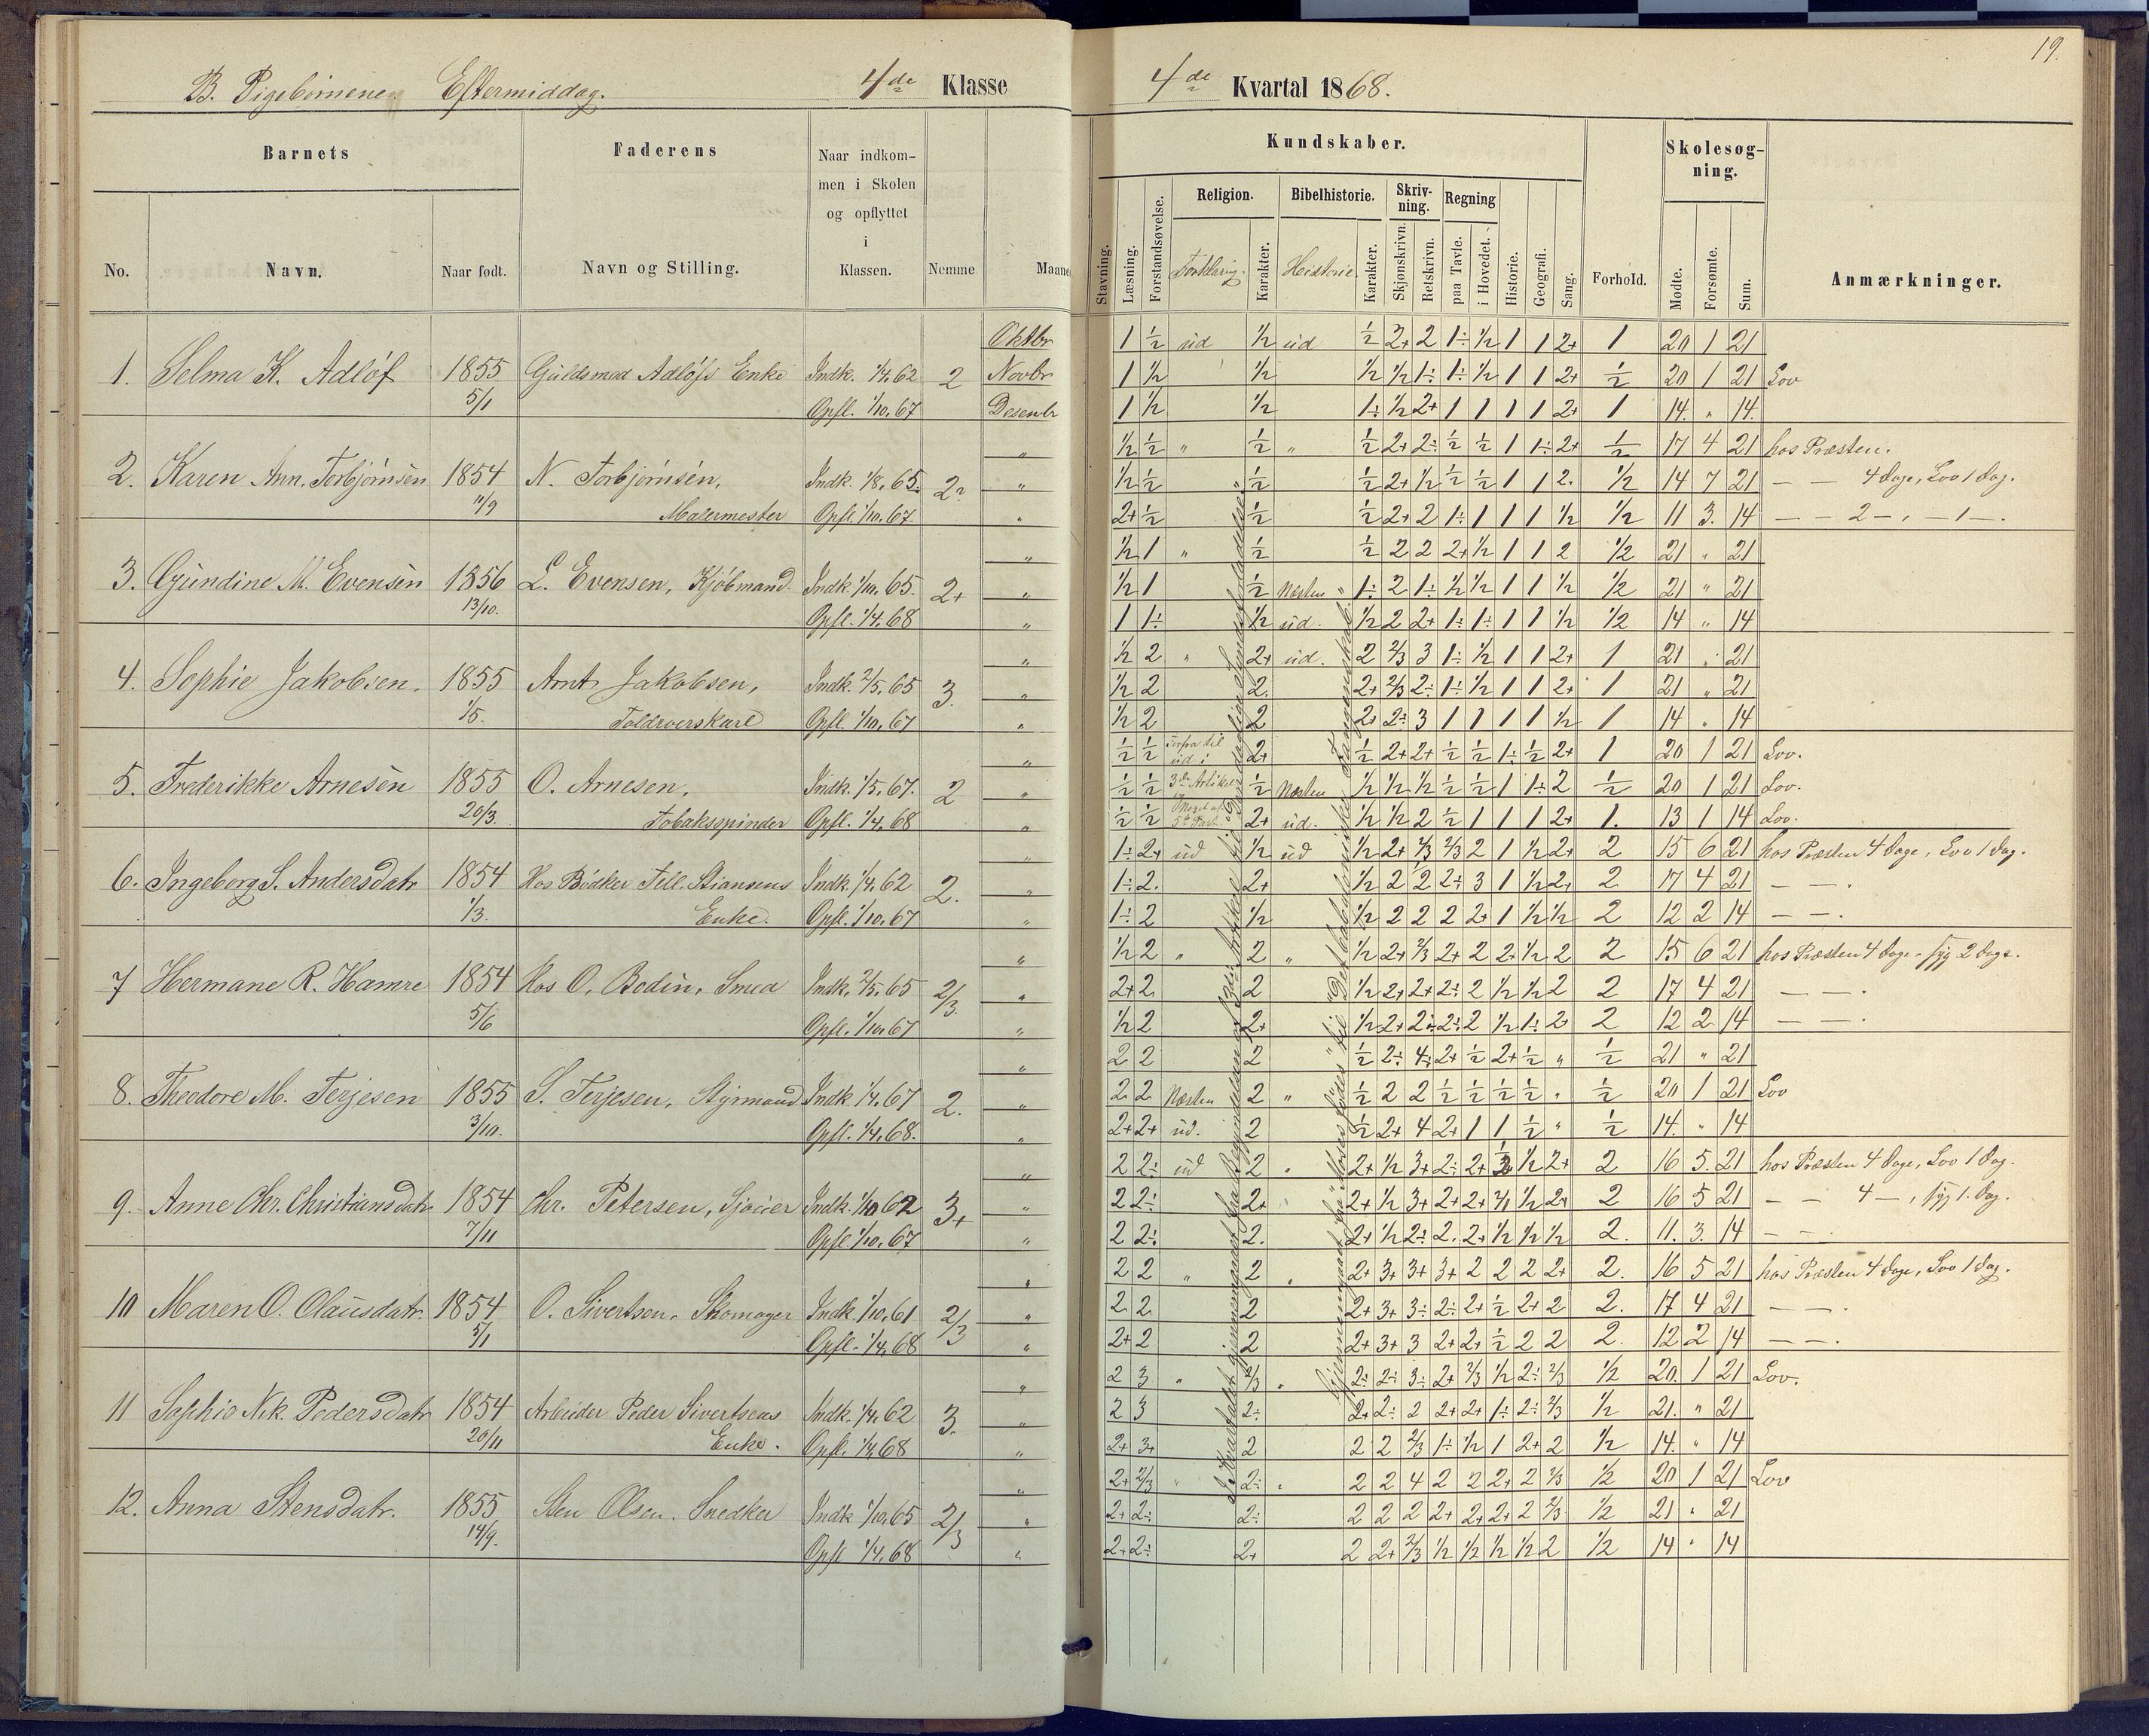 19.
B. Pigebørnene Eftermiddag. 4de Klasse
4de Kvartal 1868.
Barnets
Faderens
Naar indkom-
men i Skolen
og opflyttet
i
Klassen.
No.
Navn.
Naar født.
Navn og Stilling.
Nemme
Maane
Kundskaber.
Skolesøg-
ning.
Religion.
Bibelhistorie.
Skriv-
ning.
Regning
Stavning.
Læsning.
Forstandsøvelse.
Forklaring.
Karakter.
Historie
Karakter.
Skjønskrivn.
Retskrivn.
paa Tavle.
i Hovedet.
Historie.
Geografi.
Sang.
Forhold.
Mødte.
Forsømte.
Sum.
Anmærkninger.
Oktbr 1 ½ ud ½ ud ½ 2+ 2 1÷ ½ 1 1 2+ 1 20 1 21
1. Selma K. Adløf 1855 Guldsmed Adløfs Enke Indk. 1/4. 62 2 Novbr 1 ½ ½ ½ ½ 1÷ 1÷ ½ 1 1 2+ ½ 20 1 21 Lov
5/1 Opfl. 1/10. 67 Desenbr 1 ½ ½ 1÷ ½ 2+ 1 1 1 1 2+ 1 14. " 14.
" ½ ½ " ½ " ½ 2+ 2÷ ½ ½ 1 1÷ 2+ ½ 17 4 21 hos Præsten.
2. Karen Ann. Torbjørnsen 1854 N. Torbjørnsen, Indk. 1/8. 65. " ½ ½ ½ ½ 2+ ½ ½ ½ 1 1 2. ½ 14 7 21 — — 4 Dage, Lov 1 Dag.
11/9 Malermester Opfl. 1/10. 67. " 2+ ½ ½ ½ 2+ 2 1÷ 1 1 1 ½ ½ 11 3. 14 — — 2 —, — 1 —.
" ½ 1 " ½ ½ 2 2 2+ ½ 1 1 2 ½ 21 " 21
3. Gundine M. Evensen 1856 L. Evensen, Kjøbmand. Indk. 1/10. 65. 2+ " ½ 1 ½ Næsten 1÷ 2 1÷ ½ ½ 1 1 ½ ½ 21 " 21
13/10. Opfl. 1/4. 68 " 1 1÷ ½ ud. ½ 2 2+ 1÷ 1÷ 1 1 ½ ½ 14 " 14
" ½ 2 " 2+ ud. 2 2/3 3 1÷ ½ 1 1 2+ 1 21 " 21
4. Sophie Jakobsen. 1855 Arnt Jakobsen, Indk. 2/5. 65 3. " ½ 2 2. 2+ 2/3 2÷ 1÷ ½ 1 1 2+ 1 21 " 21
1/5. Toldroerskarl Opfl. 1/10. 67 " ½ 2 2 2+ 2÷ 3 1 1 1 1 ½ 1 14 " 14
" ½ ½ Forfra til ud i 2+ ½ 2+ 2+ ½ ½ 1÷ ½ 2+ 1 20 1 21 Lov.
5. Frederikke Arnesen 1855 O. Arnesen, Indk. 1/5. 67. 2 " ½ ½ 3die Artikel ½ Næsten ½ ½ ½ ½ ½ 1 1÷ 2 ½ 20 1 21 Lov.
20/3. Tobaksspinder Opfl. 1/4. 68 " ½ ½ 2+ ud. ½ ½ 2 ½ 1 1 1 2+ 1. 13 1 14 Lov.
" 1÷ 2+ ud ½ ud ½ 2+ 2/3 2 1 ½ 2+ 2 15 6 21 hos Præsten 4 Dage, Lov 1 Dag.
6. Ingeborg S. Andersdatr 1854 Hos Bødker Tell. Stiansens Indk. 1/4. 62 2. " 1÷ 2. 2+ ½ 2 2 2+ 3 1 ½ 2+ 2 17 4 21 — —.
1/3. Enke. Opfl. 1/10. 67 " 1÷ 2 ½ ½ 2 2 2 2+ 1 ½ ½ 2 12 2 14 — —.
" ½ 2 " 2 " ½ 2+ 2/3 2+ 2 2+ ½ 2 2 15 6 21 hos Præsten 4 Dage. syg 2 Dage.
7 Hermane R. Hamre 1854 Hos O. Bodin, Smed Indk. 2/5. 65 2/3. " 2+ 2. 2 ½ 2+ 2+ 2÷ 2 ½ ½ 2 2 17 4 21 — —.
5/6 Opfl. 1/10. 67 " ½ 2 2+ ½ 2+ 2÷ 2÷ 2 ½ 1÷ 2+ 2 12 2 14 — —.
" 2 2 2 ½ 2÷ 4÷ 2+ ½ 2+ ½ " ½ 21 " 21
8. Theodore M. Terjesen 1855 S. Terjesen, Styrmand Indk. 1/4. 67 2. " 2 2 Næsten 2 " ½ 2 2 ½ ½ ½ ½ " ½ 20 1 21 Lov
3/10. Opfl. 1/4. 68. " 2+ 2+ ud. 2 ½ 2+ 4 2+ 1 1 ½ " ½ 14. " 14
" 2 2÷ ud 2 " 2+ ½ 3+ 2÷ 2+ ½ 2+ 2 16 5. 21 hos Præsten 4 Dage, Lov 1 Dag.
9. Anne Chr. Christiansdatr. 1854 Chr. Petersen, Sjouer Indk. 1/10 62 3+ " 2 2÷ 2+ 2+ ½ 3+ 2+ 2+ ½ 2+ 2 16 5 21 — — 4 —, syg 1. Dag.
7/11 Opfl 1/10. 67 " 2 2÷ 2. 2+ ½ 2÷ 2. 2+ ½ ½ ½ 2. 11. 3. 14 — —.
" 2 2 " 2 " 2+ 3+ 3+ 3+ 2 2 2 2+ 2. 16 5 21 hos Præsten 4 Dage, Lov 1 Dag.
10 Maren O. Olausdatr. 1854 O. Sivertsen. Skomager Indk. 1/10. 61 2/3 " 2 2 2 2+ 3+ 3÷ 2÷ 2+ ½ 2+ 2 2. 17 4 21 — —.
5/1 Opfl. 1/4. 68 " 2+ 2 2 2+ 3+ 3 2+ 2+ ½ 2 2 2. 12 2 14 — —.
" 2 3 " 2/3 " 2÷ 2÷ 3÷ 2+ 2/3 ½ 2÷ 2/3 ½ 20. 1 21 Lov.
11 Sophie Nik. Pedersdatr 1854 Arbeider Peder Sivertsens Indk. 1/4. 62 3. " 2 3 2÷ 2+ 2÷ 2 2+ 2+ 1÷ 2÷ 2/3 ½ 21. " 21
20/11 Enke. Opfl. 1/4. 68 " 2+ 3+ 2 2 2 2/3 1÷ ½ 1 2+ 2 ½ 14. " 14
" 2+ 2/3 " 2÷ " 2 2 4 2 2 2+ 2 2/3 ½ 20 1 21 Lov
12. Anna Stensdatr. 1855 Sten Olsen. Snedker Indk 1/10. 65 2/3 " 2+ 2÷ 2÷ 2 2 2 2+ 2+ 2+ 2 2/3 ½ 21 " 21
14/9. Opfl 1/4. 68 " 2+ 2÷ 2+ 2 2+ 2/3 ½ ½ ½ ½ 2 ½ 14 " 14